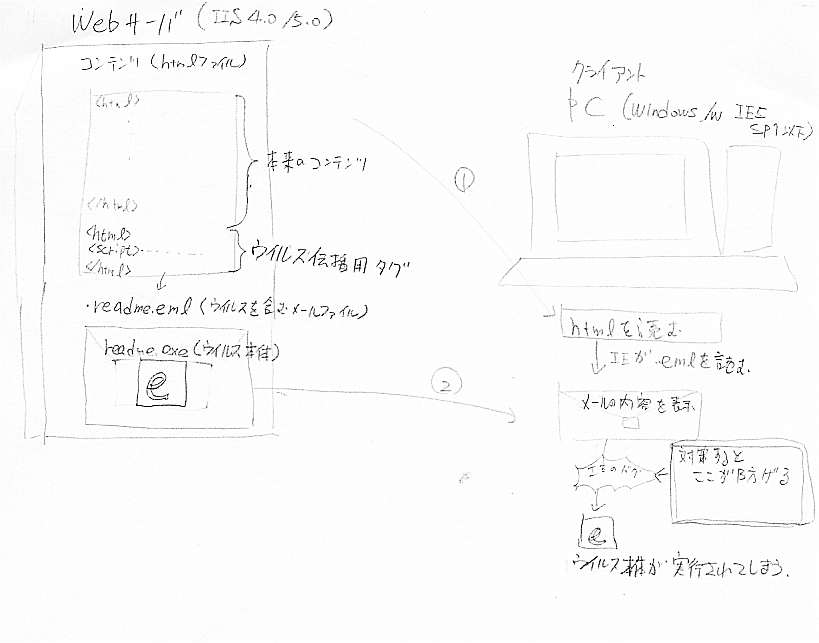 Webサーバ (IIS 4.0/5.0)
コンテンツ (htmlファイル)
<html>
</html>
本来のコンテンツ
<html>
<script>
</html>
ウイルス伝播用タグ
・readme.eml (ウイルスを含むメールファイル)
readme.exe (ウイルス本体)
e
クライアント
PC (Windows /w IE5
SP1以下)
①
htmlを読む
IEが.emlを読む
②
メールの内容を表示
IEのバグ
対策すると
ここが防げる
e
ウイルス本体が実行されてしまう.